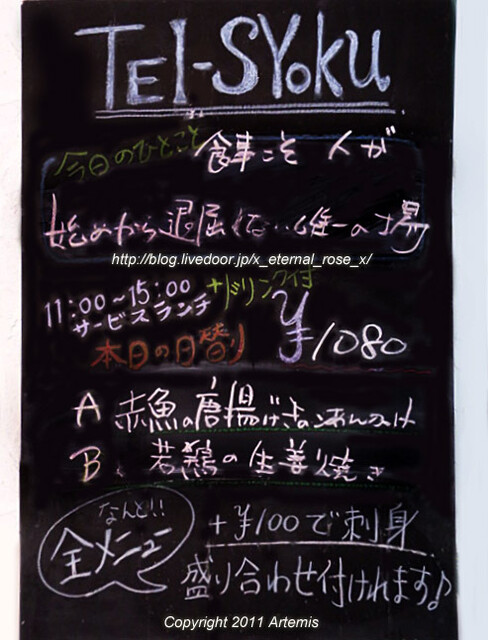 TEI-SYoKU
今日のひとこと 食事こそ 人が
始めから退屈しない唯一の場
http://blog.livedoor.jp/x_eternal_rose_x/
11:00~15:00 +ドリンク付
サービスランチ ¥1080
本日の日替り
A 赤魚の唐揚げきのこあんかけ
B、若鶏の生姜焼き
なんと!!
全メニュー
+¥100で刺身
盛り合わせ付けれます♪
Copyright 2011 Artemis